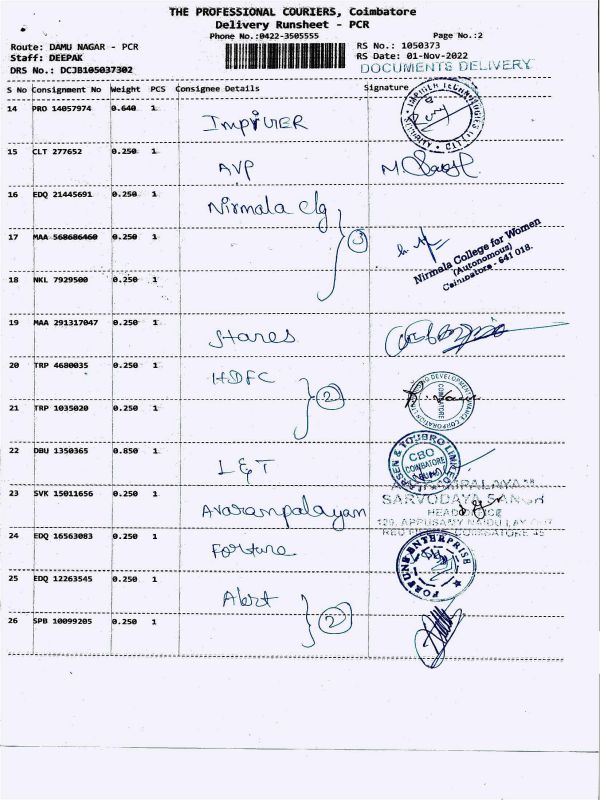 THE PROFESSIONAL COURIERS, Coimbatore
Delivery Runsheet - PCR
Phone No.:0422-3505555
Page No.:2
Route: DAMU NAGAR - PCR
RS No.: 1050373
Staff: DEEPAK
RS Date: 01-Nov-2022
DRS No.: DCJB105037302
DOCUMENTS DELIVERY
S No Consignment No Weight PCS Consignee Details Signature
14 PRO 14057974 0.640 1
15 CLT 277652 0.250 1 AVP
16 EDQ 21445691 0.250 1 Nirmala clg
17 MAA 568686460 0.250 1 3
Nirmala College for Women
(Autonomous)
Coimbatore - 641 018.
18 NKL 7929500 0.250 1
19 MAA 291317047 0.250 1 Stares
20 TRP 4680035 0.250 1 HDFC 2
COIMBATORE
21 TRP 1035020 0.250 1
22 DBU 1350365 0.850 1 L&T
LARSEN & TOUBRO LIMITED
CBO
COIMBATORE
23 SVK 15011656 0.250 1 Avarampalayam
SARVODAYA SANGH
HEAD OFFICE
129, APPUSAMY NAIDU LAY OUT
COIMBATORE 45
24 EDQ 16563083 0.250 1 Fortune
FORTUNE ENTERPRISE
25 EDQ 12263545 0.250 1 Alert 2
26 SPB 10099205 0.250 1